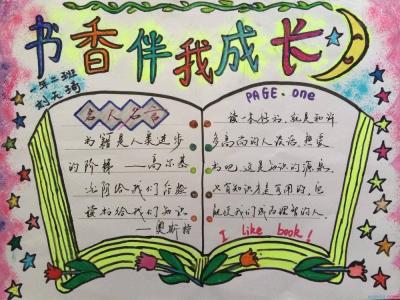 书香伴我成长
一年二班
名人名言
书籍是人类进步
的阶梯——高尔基
太阳给我们
读书给我们知识
——奥斯特
PAGE. one
读一本好书，就是和许
多高尚的人谈话，热爱
书吧，这是知识的源泉，
只有知识才是有用的，
I like book!